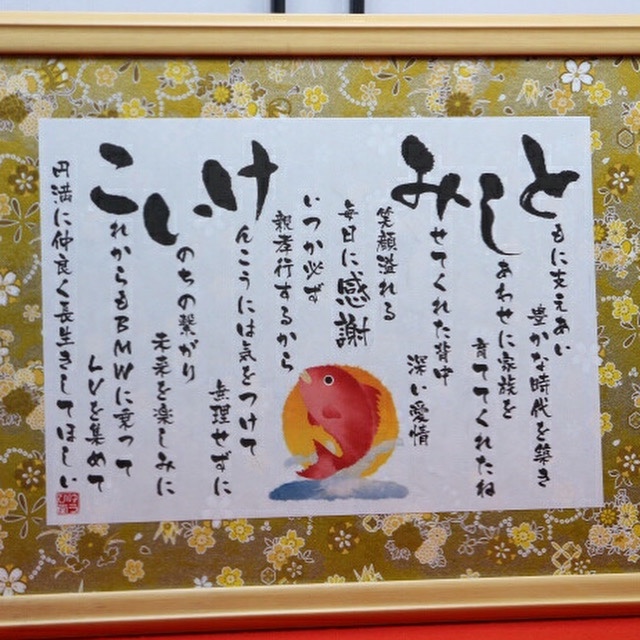 ともに支えあい
豊かな時代を築き
しあわせに家族を
育ててくれたね
みせてくれた背中
深い愛情
笑顔溢れる
毎日に感謝
いつか必ず
親孝行するから
けんこうには気をつけて
無理せずに
いのちの繋がり
未来を楽しみに
これからもBMWに乗って
LVを集めて
円満に仲良く長生きしてほしい